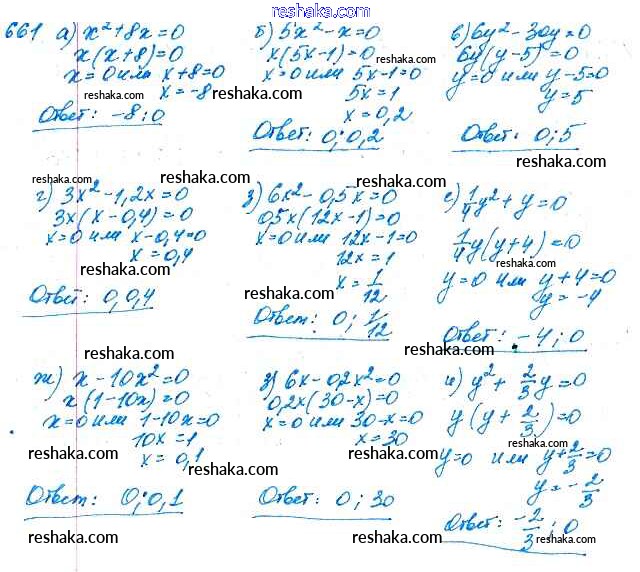 reshaka.com
661 а) x²+8x=0
x(x+8)=0
x=0 или x+8=0
x=-8
reshaka.com
Ответ: -8; 0
б) 5x²-x=0
x(5x-1)=0
x=0 или 5x-1=0
reshaka.com
5x=1
x=0,2
Ответ: 0; 0,2
reshaka.com
в) 6y²-30y=0
6y(y-5)=0
y=0 или y-5=0
reshaka.com
y=5
Ответ: 0; 5
reshaka.com
г) 3x²-1,2x=0
reshaka.com
3x(x-0,4)=0
x=0 или x-0,4=0
x=0,4
reshaka.com
Ответ: 0, 0,4
reshaka.com
з) 6x²-0,5x=0
reshaka.com
0,5x(12x-1)=0
x=0 или 12x-1=0
12x=1
x=1/12
reshaka.com
Ответ: 0; 1/12
е) 1/4y²+y=0
reshaka.com
1/4y(y+4)=0
reshaka.com
y=0 или y+4=0
y=-4
Ответ: -4; 0
reshaka.com
ж) x-10x²=0
reshaka.com
x(1-10x)=0
x=0 или 1-10x=0
10x=1
x=0,1
reshaka.com
Ответ: 0; 0,1
reshaka.com
з) 6x-0,2x²=0
reshaka.com
0,2x(30-x)=0
x=0 или 30-x=0
x=30
reshaka.com
Ответ: 0; 30
reshaka.com
и) y²+2/3y=0
reshaka.com
y(y+2/3)=0
reshaka.com
y=0 или y+2/3=0
y=-2/3
reshaka.com
Ответ: -2/3; 0
reshaka.com